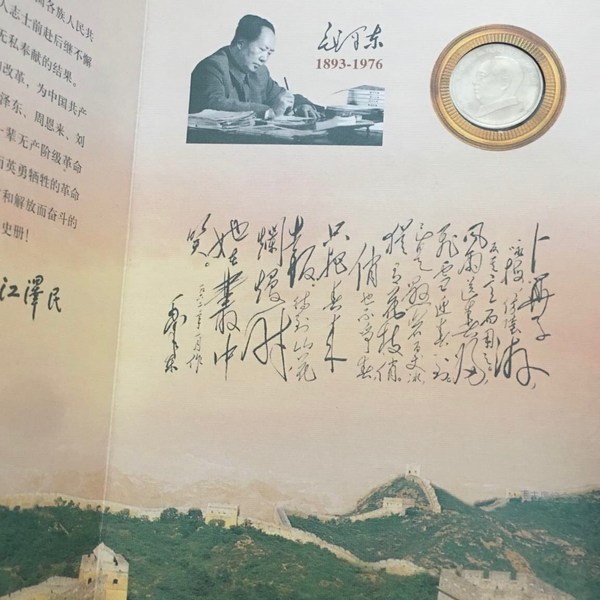 国各族人民共
人志士前赴后继不懈
无私奉献的结果。
改革，为中国共产
泽东、周恩来、刘
一辈无产阶级革命
英勇牺牲的革命
和解放而奋斗的
史册！
江澤民
毛泽东
1893-1976
卜算子
咏梅
反其意而用之。
风雨送春归，
飞雪迎春到。
已是悬崖百丈冰，
犹有花枝俏。
俏也不争春，
只把春来
报。待到山花
烂熳时，
她在叢中
笑。
毛泽东